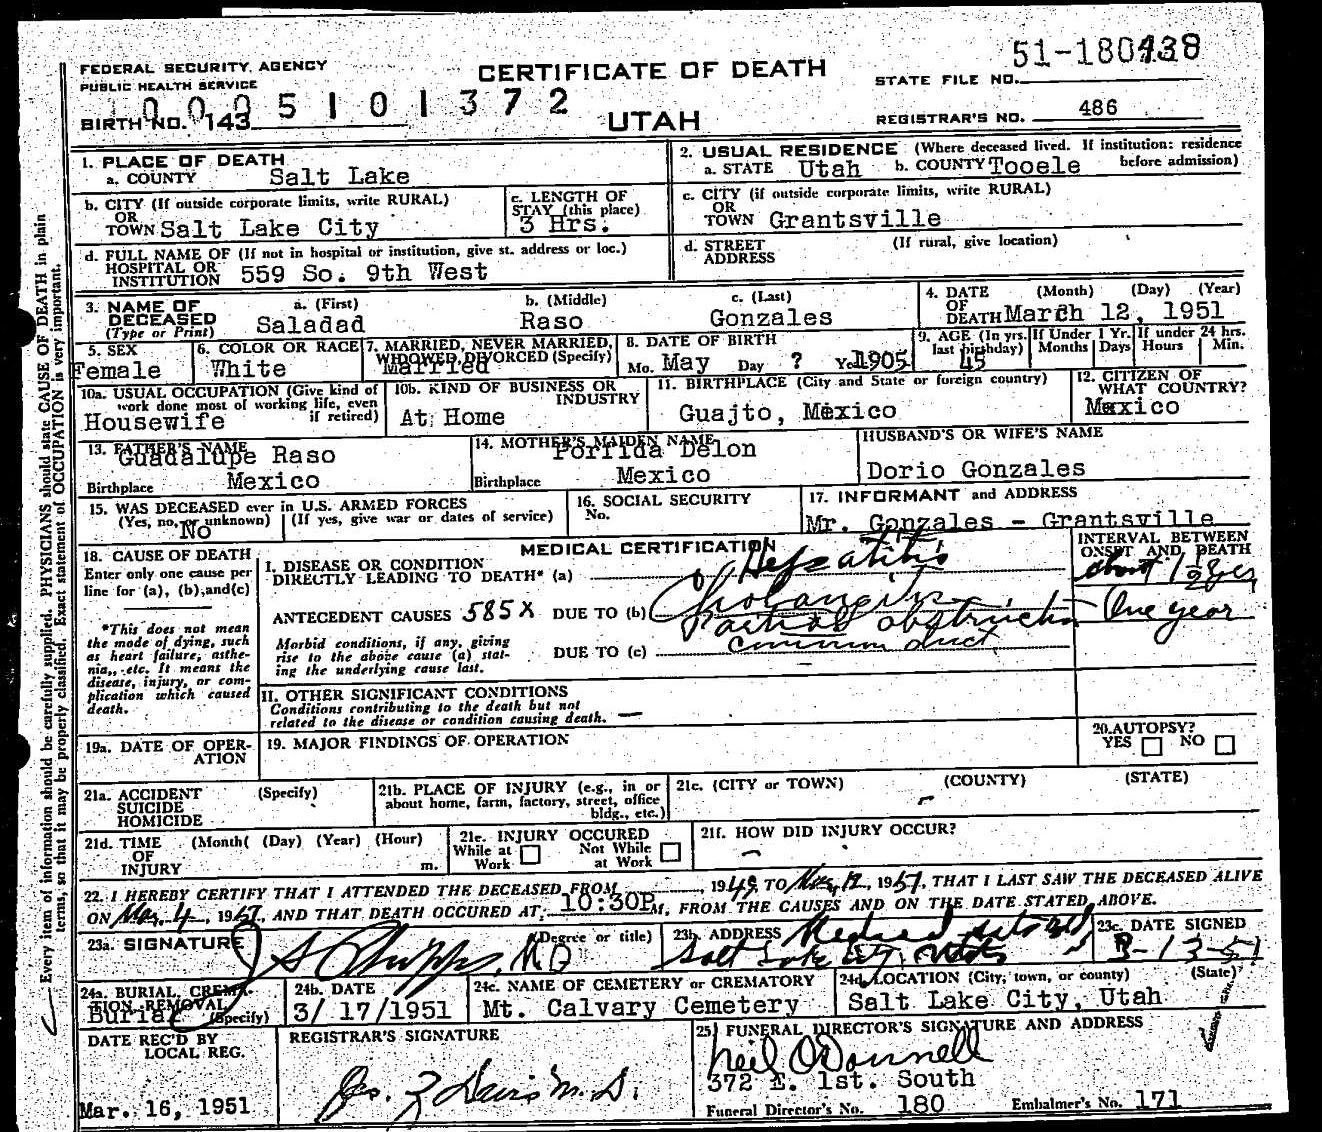 51-180438
FEDERAL SECURITY AGENCY
PUBLIC HEALTH SERVICE
CERTIFICATE OF DEATH
STATE FILE NO.
5 1 0 1 3 7 2
BIRTH NO. 143
UTAH
REGISTRAR'S NO. 486
1. PLACE OF DEATH
a. COUNTY Salt Lake
2. USUAL RESIDENCE (Where deceased lived. If institution: residence before admission)
a. STATE Utah b. COUNTY Tooele
b. CITY (If outside corporate limits, write RURAL)
OR
TOWN Salt Lake City
c. LENGTH OF
STAY (this place)
3 Hrs.
c. CITY (if outside corporate limits, write RURAL)
OR
TOWN Grantsville
d. FULL NAME OF (If not in hospital or institution, give st. address or loc.)
HOSPITAL OR
INSTITUTION 559 So. 9th West
d. STREET (If rural, give location)
ADDRESS
3. NAME OF DECEASED (Type or Print)
a. (First) b. (Middle) c. (Last)
Saladad Raso Gonzales
4. DATE OF DEATH (Month) (Day) (Year)
March 12, 1951
5. SEX
Female
6. COLOR OR RACE
White
7. MARRIED, NEVER MARRIED,
WIDOWED, DIVORCED (Specify)
Married
8. DATE OF BIRTH
Mo. May Day ? Yr. 1905
9. AGE (In yrs. last birthday)
45
If Under 1 Yr. Months Days
If under 24 hrs. Hours Min.
10a. USUAL OCCUPATION (Give kind of
work done most of working life, even
if retired)
Housewife
10b. KIND OF BUSINESS OR
INDUSTRY
At Home
11. BIRTHPLACE (City and State or foreign country)
Guajto, Mexico
12. CITIZEN OF
WHAT COUNTRY?
Mexico
13. FATHER'S NAME
Guadalupe Raso
Birthplace Mexico
14. MOTHER'S MAIDEN NAME
Porfida Delon
Birthplace Mexico
HUSBAND'S OR WIFE'S NAME
Dorio Gonzales
15. WAS DECEASED ever in U.S. ARMED FORCES
(Yes, no, or unknown) (If yes, give war or dates of service)
No
16. SOCIAL SECURITY
No.
17. INFORMANT and ADDRESS
Mr. Gonzales - Grantsville
18. CAUSE OF DEATH
Enter only one cause per
line for (a), (b), and (c)
*This does not mean
the mode of dying, such
as heart failure, asthe-
nia, etc. It means the
disease, injury, or com-
plication which caused
death.
MEDICAL CERTIFICATION
INTERVAL BETWEEN
ONSET AND DEATH
I. DISEASE OR CONDITION
DIRECTLY LEADING TO DEATH* (a) Hepatitis
about 1 1/2 yrs
ANTECEDENT CAUSES 585X DUE TO (b) Cholangitis
One year
Partial obstruction
Morbid conditions, if any, giving
rise to the above cause (a) stat-
ing the underlying cause last.
DUE TO (c) common duct
II. OTHER SIGNIFICANT CONDITIONS
Conditions contributing to the death but not
related to the disease or condition causing death. —
19a. DATE OF OPER-
ATION
19. MAJOR FINDINGS OF OPERATION
20. AUTOPSY?
YES NO
21a. ACCIDENT (Specify)
SUICIDE
HOMICIDE
21b. PLACE OF INJURY (e.g., in or
about home, farm, factory, street, office
bldg., etc.)
21c. (CITY or TOWN) (COUNTY) (STATE)
21d. TIME (Month( (Day) (Year) (Hour)
OF
INJURY m.
21e. INJURY OCCURED
While at Work Not While at Work
21f. HOW DID INJURY OCCUR?
22. I HEREBY CERTIFY THAT I ATTENDED THE DECEASED FROM , 1949 TO Mar. 12, 1951, THAT I LAST SAW THE DECEASED ALIVE
ON Mar. 4, 1951, AND THAT DEATH OCCURED AT 10:30P M. FROM THE CAUSES AND ON THE DATE STATED ABOVE.
23a. SIGNATURE (Degree or title)
M D
23b. ADDRESS Medical Arts Bld
Salt Lake City, Utah
23c. DATE SIGNED
3-13-51
24a. BURIAL, CREMA-
TION, REMOVAL
(Specify)
Burial
24b. DATE
3/ 17/1951
24c. NAME OF CEMETERY or CREMATORY
Mt. Calvary Cemetery
24d. LOCATION (City, town, or county) (State)
Salt Lake City, Utah
DATE REC'D BY
LOCAL REG.
Mar. 16, 1951
REGISTRAR'S SIGNATURE
Jos. Z Davis M.D.
25. FUNERAL DIRECTOR'S SIGNATURE AND ADDRESS
Neil O'Donnell
372 E. 1st. South
Funeral Director's No. 180 Embalmer's No. 171
Every item of information should be carefully supplied. PHYSICIANS should state CAUSE OF DEATH in plain
terms, so that it may be properly classified. Exact statement of OCCUPATION is very important.